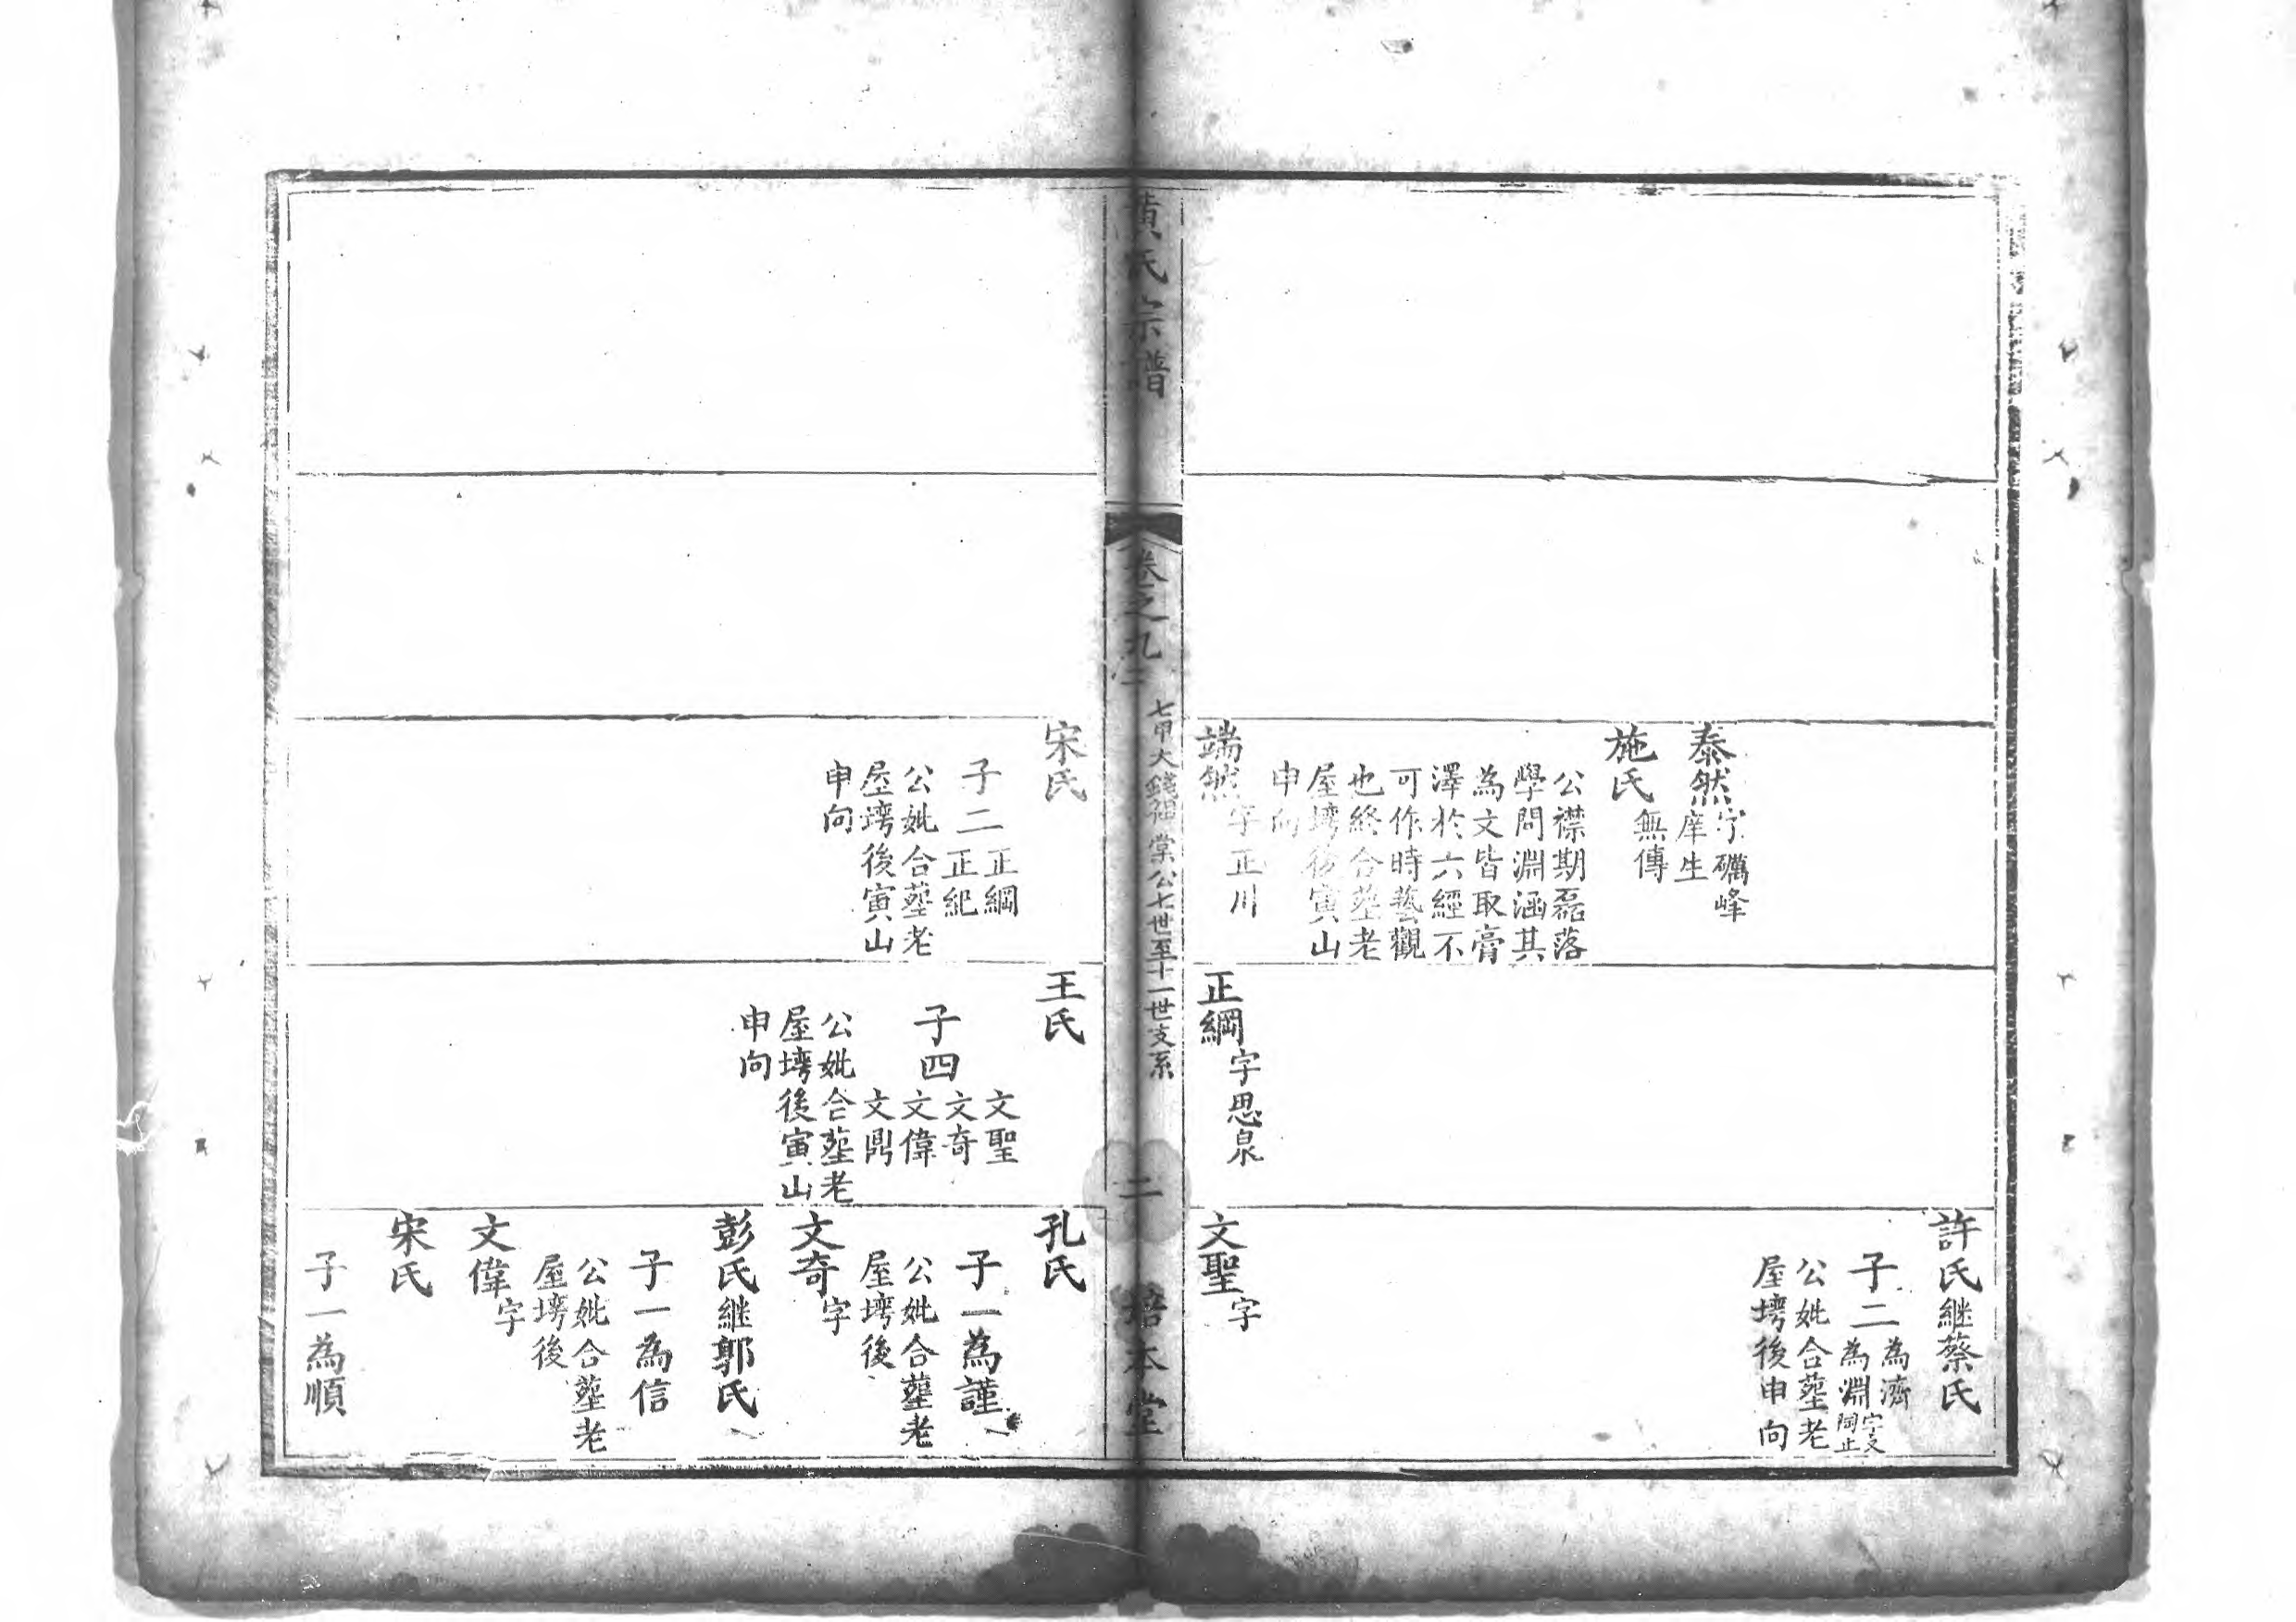 泰然字礪峰
庠生
施氏無傳
公襟期磊落
學問淵涵其
為文皆取膏
澤於六經不
可作時藝觀
也終合塟老
屋塆後寅山
申向
端然字正川
正綱字思泉
許氏継蔡氏
子二為濟
為淵字文
同止
公妣合塟老
屋塆後申向
文聖字
黄氏宗譜
卷之九
七甲大錢福棠公七世至十一世支系
二
培本堂
宋氏
子二正綱
正紀
公妣合塟老
屋塆後寅山
申向
王氏
子四文聖
文奇
文偉
文鼎
公妣合塟老
屋塆後寅山
申向
孔氏
子一為謹
公妣合塟老
屋塆後
文奇字
彭氏継郭氏
子一為信
公妣合塟老
屋塆後
文偉字
宋氏
子一為順